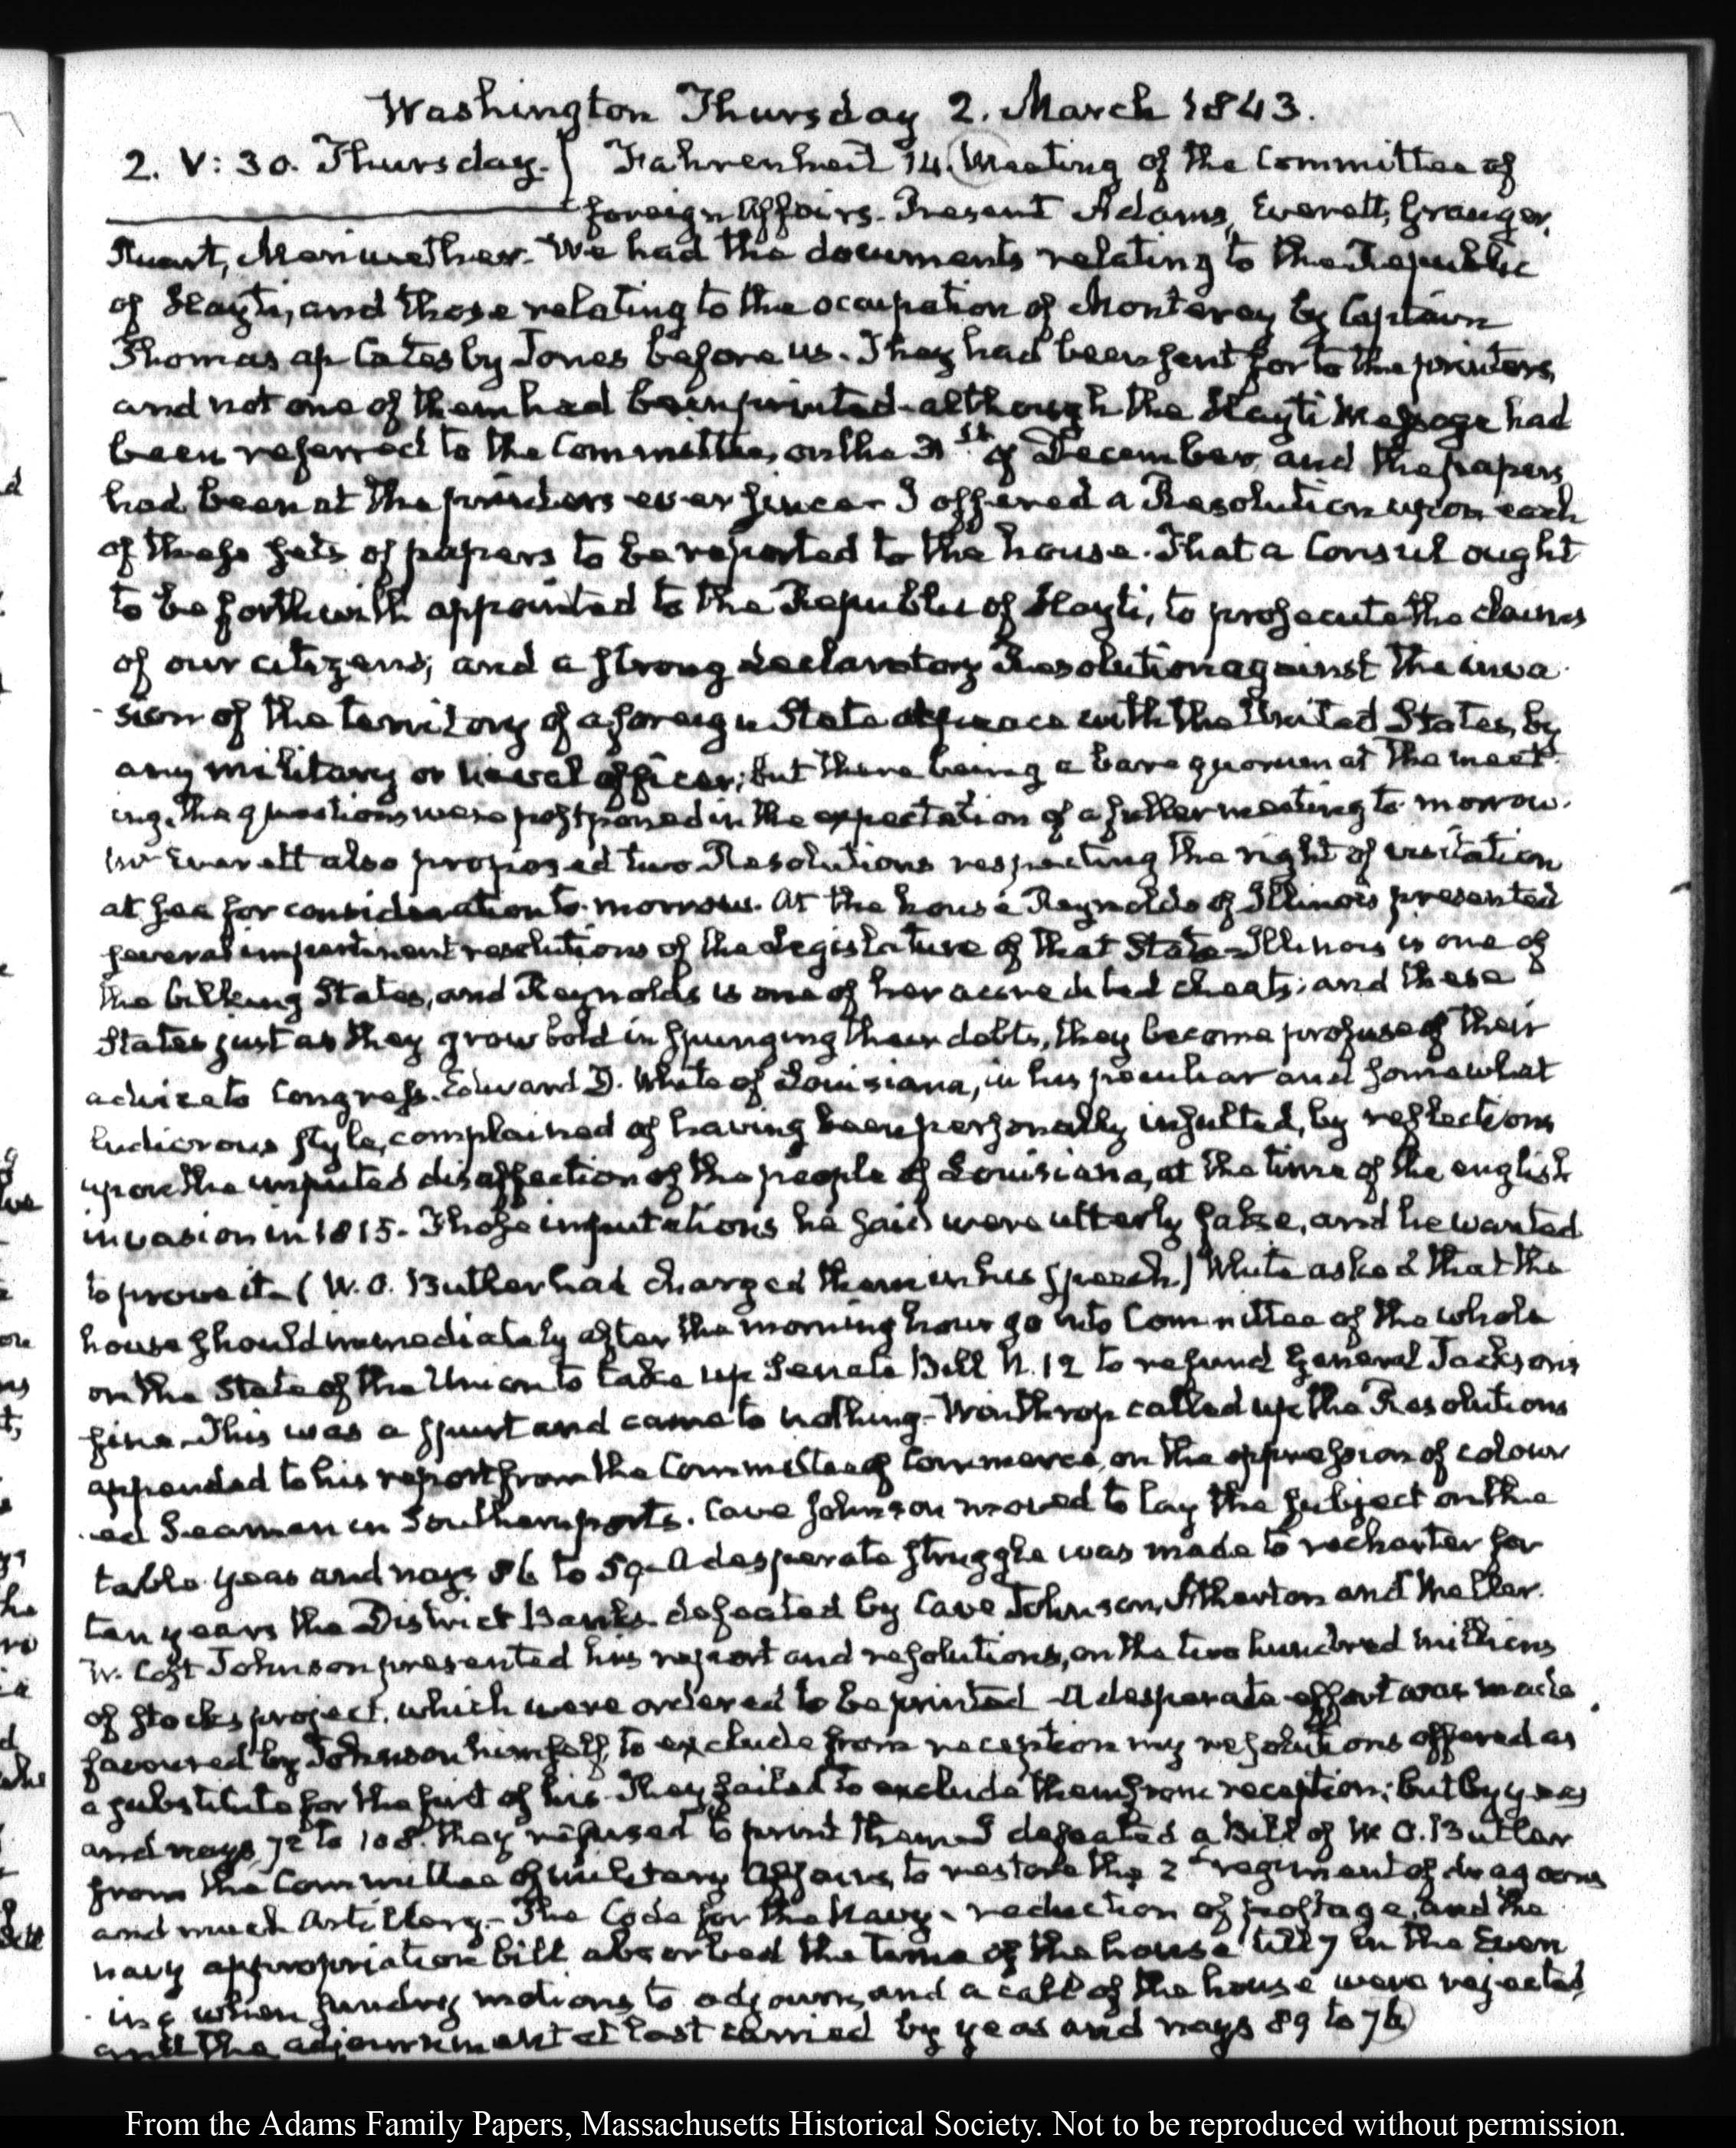 Washington Thursday 2. March 1843.
2. V: 30. Thursday. Fahrenheit 14. Meeting of the Committee of
foreign Affairs. Present Adams, Everett, Granger,
Stuart, Meriwether. We had the documents relating to the Republic
of Hayti, and those relating to the occupation of Monterey by Captain
Thomas ap Catesby Jones before us. They had been sent for to the printers,
and not one of them had been printed - although the Hayti Message had
been referred to the Committee, on the 31st of December, and the papers
had been at the printers ever since - I offered a Resolution upon each
of these sets of papers to be reported to the house. That a Consul ought
to be forthwith appointed to the Republic of Hayti, to prosecute the claims
of our citizens; and a strong declaratory Resolution against the inva
-sion of the territory of a foreign State at peace with the United States, by
any military or naval officer; but there being a bare quorum at the meet
ing, the questions were postponed in the expectation of a fuller meeting to-morrow.
Mr Everett also proposed two Resolutions respecting the right of visitation
at sea for consideration to-morrow. At the house Reynolds of Illinois presented
several impertinent resolutions of the Legislature of that State - Illinois is one of
the bilking States, and Reynolds is one of her accredited cheats; and these
States just as they grow bold in spunging their debts, they become profuse of their
advice to Congress. Edward D. White of Louisiana, in his peculiar and somewhat
ludicrous style, complained of having been personally insulted, by reflections
upon the imputed disaffection of the people of Louisiana, at the time of the english
invasion in 1815. Those imputations he said were utterly false, and he wanted
to prove it - (W. O. Butler had charged them in his speech) White asked that the
house should immediately after the morning hour go into Committee of the whole
on the State of the Union to take up Senate Bill N. 12 to refund General Jacksons
fine. This was a spurt and came to nothing - Winthrop called up the Resolutions
appended to his report from the Committee of Commerce, on the oppression of colour
-ed Seamen in Southern ports. Cave Johnson moved to lay the subject on the
table. yeas and nays 86 to 59 - A desperate struggle was made to recharter for
ten years the District Banks defeated by Cave Johnson, Atherton and Weller.
W. Cost Johnson presented his report and resolutions, on the two hundred millions
of stocks project, which were ordered to be printed - A desperate effort was made
favoured by Johnson himself, to exclude from reception my resolutions offered as
a substitute for the first of his. They failed to exclude them from reception; but by yeas
and nays 72 to 108. they refused to print them. I defeated a Bill of W. O. Butler
from the Committee of military Affairs, to restore the 2d regiment of dragoons
and much Artillery - The Code for the Navy - reduction of postage, and the
navy appropriation bill absorbed the time of the house till 7 in the Even
-ing when sundry motions to adjourn, and a call of the house were rejected,
and the adjournment at last carried by yeas and nays 89 to 76
From the Adams Family Papers, Massachusetts Historical Society. Not to be reproduced without permission.